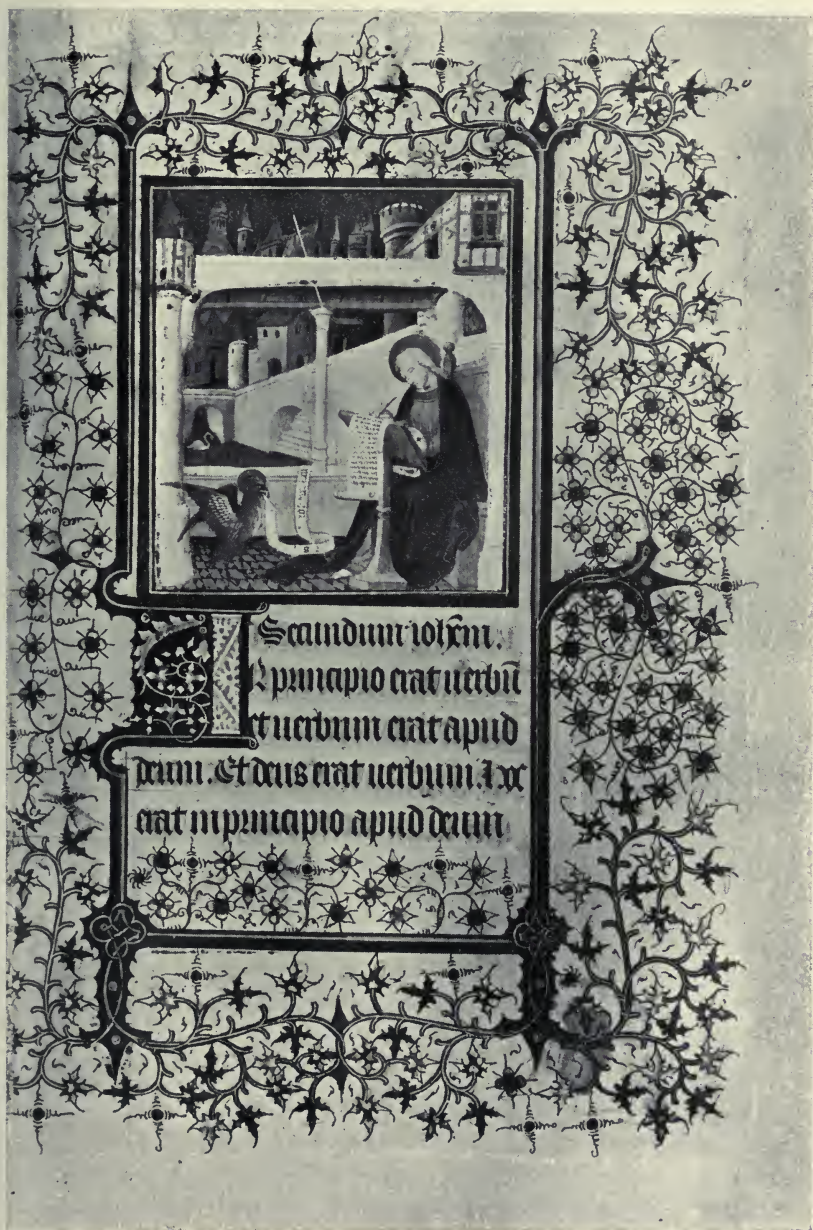 Secundum ioh̅em.
principio erat uerbu̅
et uerbum erat apud
deum. Et deus erat uerbum. hoc
erat in principio apud deum